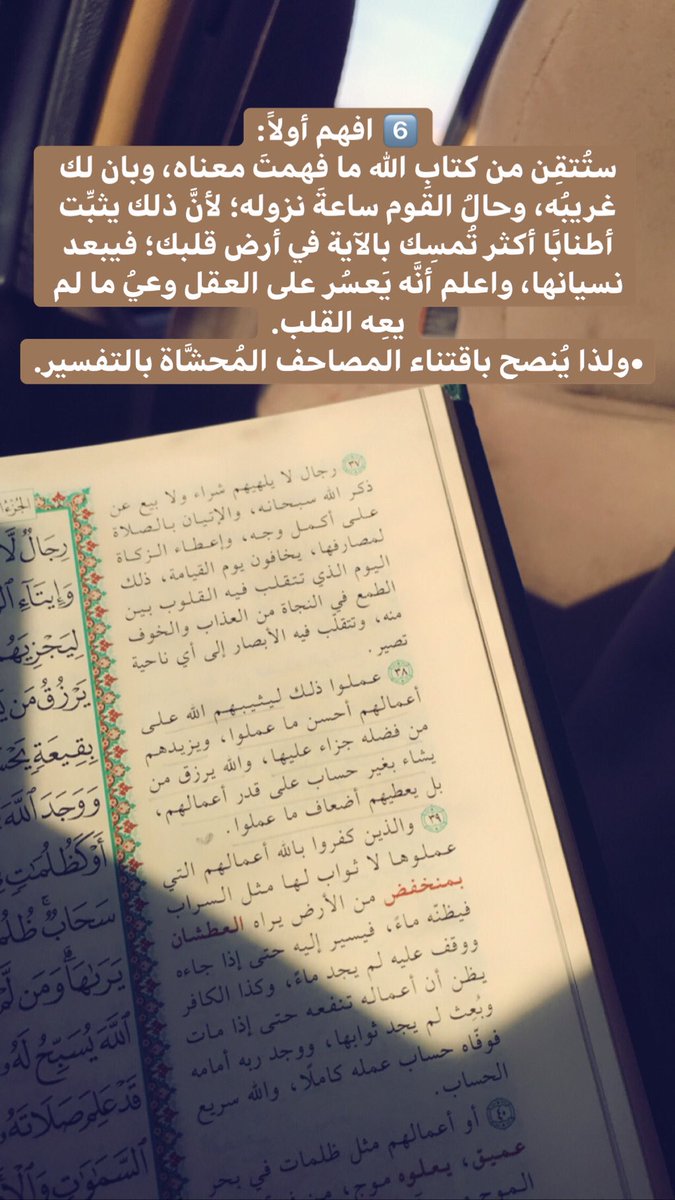 6 افهم أولاً:
ستُتقِن من كتابِ الله ما فهمتَ معناه، وبان لك
غريبُه، وحالُ القوم ساعةَ نزوله؛ لأنَّ ذلك يثبِّت
أطنابًا أكثر تُمسِك بالآية في أرض قلبك؛ فيبعد
نسيانها، واعلم أنَّه يَعسُر على العقل وعيُ ما لم
يعِه القلب.
•ولذا يُنصح باقتناء المصاحف المُحشَّاة بالتفسير.
الجُزءُ
رِجَالٌ لَّا
وَإِيتَآءِ
لِيَجْزِيَهُم
يَرْزُقُ مَن
بِقِيعَةٍ
وَوَجَدَ ٱللَّهَ
أَوْ كَظُلُمَٰتٍ
سَحَابٌ
يَرَىٰهَا وَمَن لَّمْ
ٱللَّهَ يُسَبِّحُ لَهُۥ
قَدْ عَلِمَ صَلَاتَهُۥ
ٱلسَّمَٰوَٰتِ
٣٧ رجال لا يلهيهم شراء ولا بيع عن
ذكر الله سبحانه، والإتيان بالصلاة
على أكمل وجه، وإعطاء الزكاة
لمصارفها، يخافون يوم القيامة، ذلك
اليوم الذي تتقلب فيه القلوب بين
الطمع في النجاة من العذاب والخوف
منه، وتتقلّب فيه الأبصار إلى أي ناحية
تصير.
٣٨ عملوا ذلك ليثيبهم الله على
أعمالهم أحسن ما عملوا، ويزيدهم
من فضله جزاء عليها، والله يرزق من
يشاء بغير حساب على قدر أعمالهم،
بل يعطيهم أضعاف ما عملوا.
٣٩ والذين كفروا بالله أعمالهم التي
عملوها لا ثواب لها مثل السراب
بمنخفض من الأرض يراه العطشان
فيظنّه ماءً، فيسير إليه حتى إذا جاءه
ووقف عليه لم يجد ماءً، وكذا الكافر
يظن أن أعماله تنفعه حتى إذا مات
وبُعث لم يجد ثوابها، ووجد ربه أمامه
فوفّاه حساب عمله كاملًا، والله سريع
الحساب.
٤٠ أو أعمالهم مثل ظلمات في بحر
عميق، يعلوه موج، من